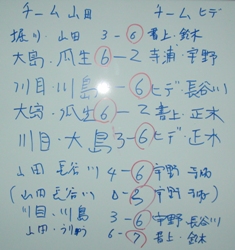 チーム山田 チームヒデ
堀川・山田 3-6 書上・鈴木
大島・瓜生 6-2 寺浦・宇野
川目・川島 3-6 ヒデ・長谷川
大島・瓜生 6-2 書上・正木
川目・大島 3-6 ヒデ・正木
山田 長谷川 4-6 宇野
(山田 長谷川 宇野
川目・川島 3-6 宇野・長谷川
山田・うりゅう 6-7 書上・鈴木